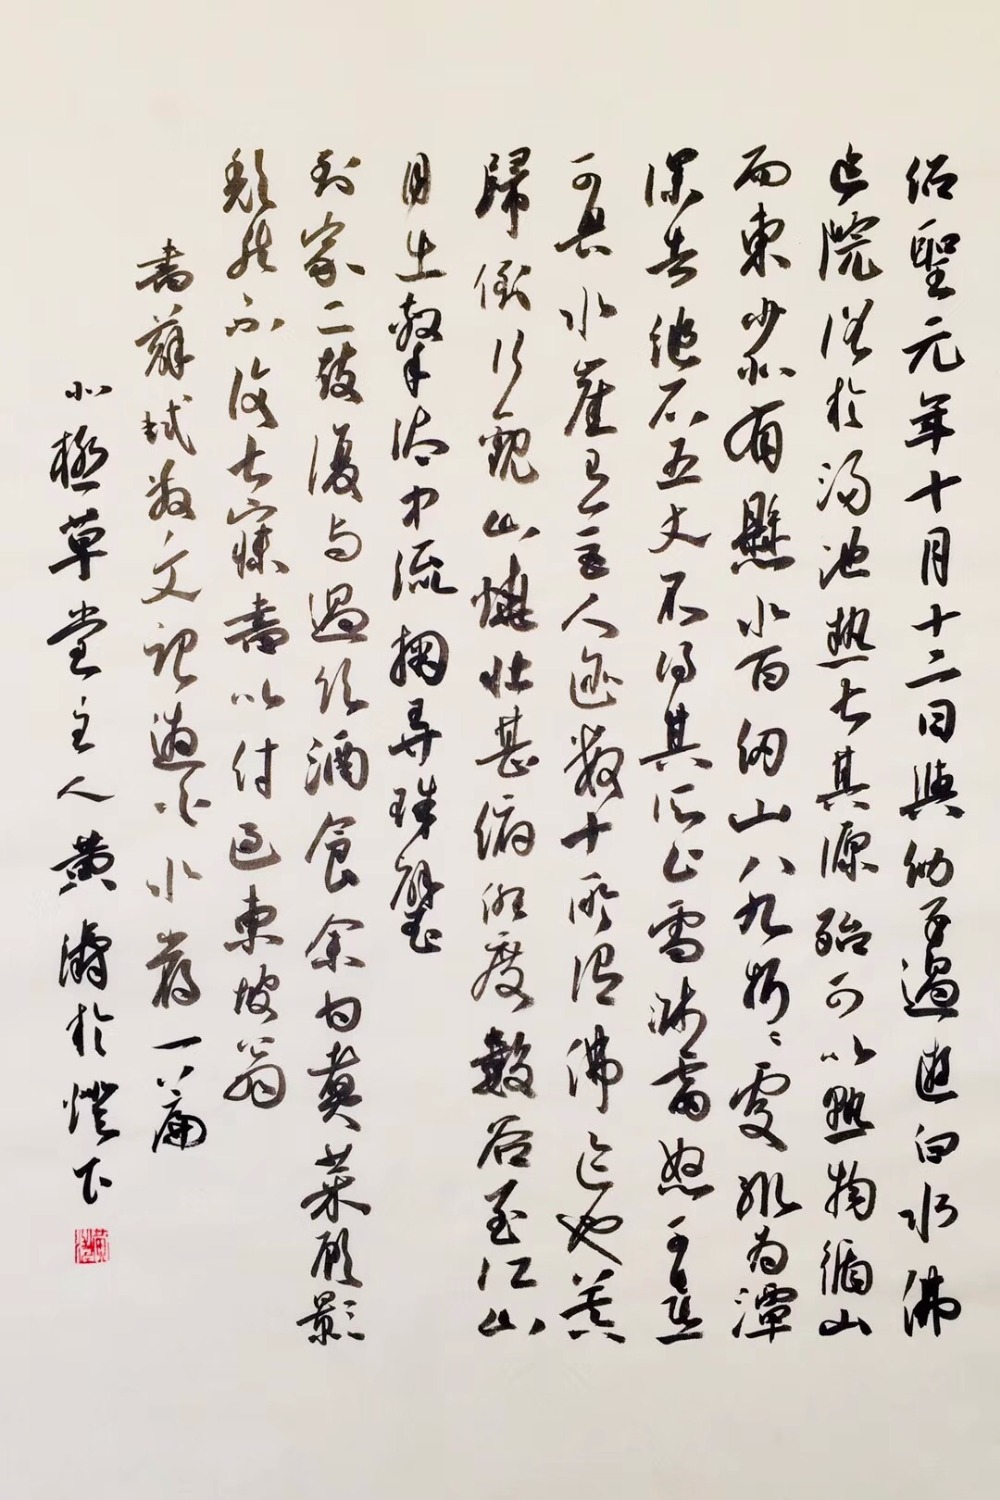 紹聖元年十月十二日與幼子過遊白水佛
迹院浴於湯池熱甚其源殆可以熟物循山
而東少北有懸水百仞山八九折折處輒為潭
深者縋石五丈不得其所止雪濺雷怒可喜
可畏水崖有巨人迹數十所謂佛迹也暮
歸倒行觀山燒壯甚俯仰度數谷至江山
月出擊汰中流掬弄珠璧
到家二鼓復与過飲酒食余甘煮菜顧影
頹然不復甚寐書以付過東坡翁
書蘇軾散文記遊白水岩一篇
北極草堂主人黄濤於燈下